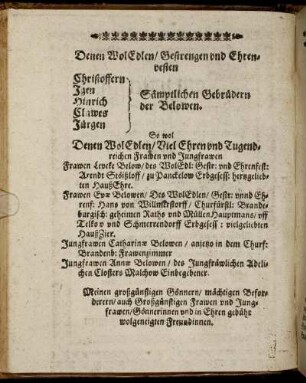 Denen WolEdlen/ Gestrengen vnd Ehren-
vesten
Christoffern
Igen
Hinrich
Clawes
Jürgen
Sämptlichen Gebrüdern
der Belowen.
So wol
Denen WolEdlen/ Viel Ehren vnd Tugend-
reichen Frawen vnd Jungfrawen
Frawen Below/ des WolEdl: Gestr: vnd Ehrenfest:
Arendt zu Panckelow Erbgesess: hertzgelieb-
ten HaußEhre.
Frawen Evæ Belowen/ Des WolEdlen/ Gestr: vnnd Eh-
renf: Hans von Churfürstl: Brande-
burgisch: geheimen Raths vnd Hauptmans/ vff
Teltow vnd Erbgesess: vielgeliebten
HaußZier.
Jungfrawen Catharinæ Belowen/ anjetzo in dem Churf:
Brandenb: Frawenzimmer
Jungfrawen Annæ Belowen/ des Jungfräwlichen Adeli-
chen Closters Malchow Einbegebener.
Meinen großgünstigen Gönnern/ mächtigen Befor-
derern/ auch Großgünstigen Frawen vnd Jung-
frawen/ Gönnerinnen vnd in Ehren gebühr
wolgeneigten Freundinnen.